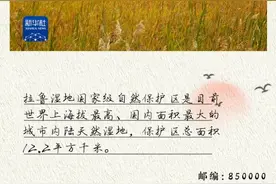 新华社
拉鲁湿地国家级自然保护区是目前
世界上海拔最高、国内面积最大的
城市内陆天然湿地，保护区总面积
12.2平方千米。
邮编：850000